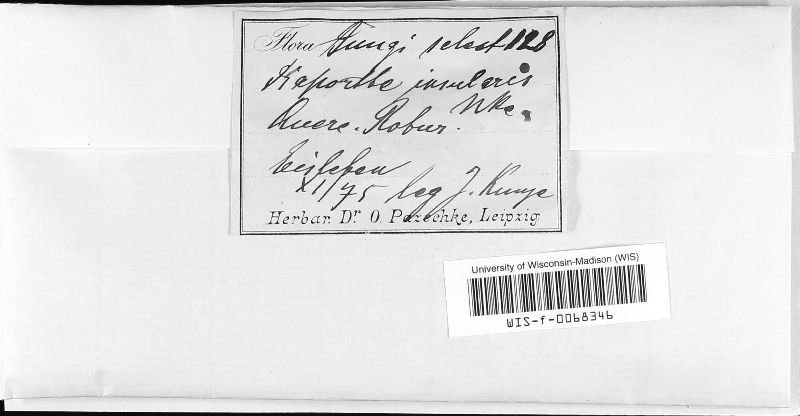 Flora Fungi select 128
Kaporthe insularis
Nke.
Querc. Robur.
Eisleben
XI/75 leg J. Kunze
Herbar. Dr O. Pazschke, Leipzig
University of Wisconsin-Madison (WIS)
WIS-f-0068346